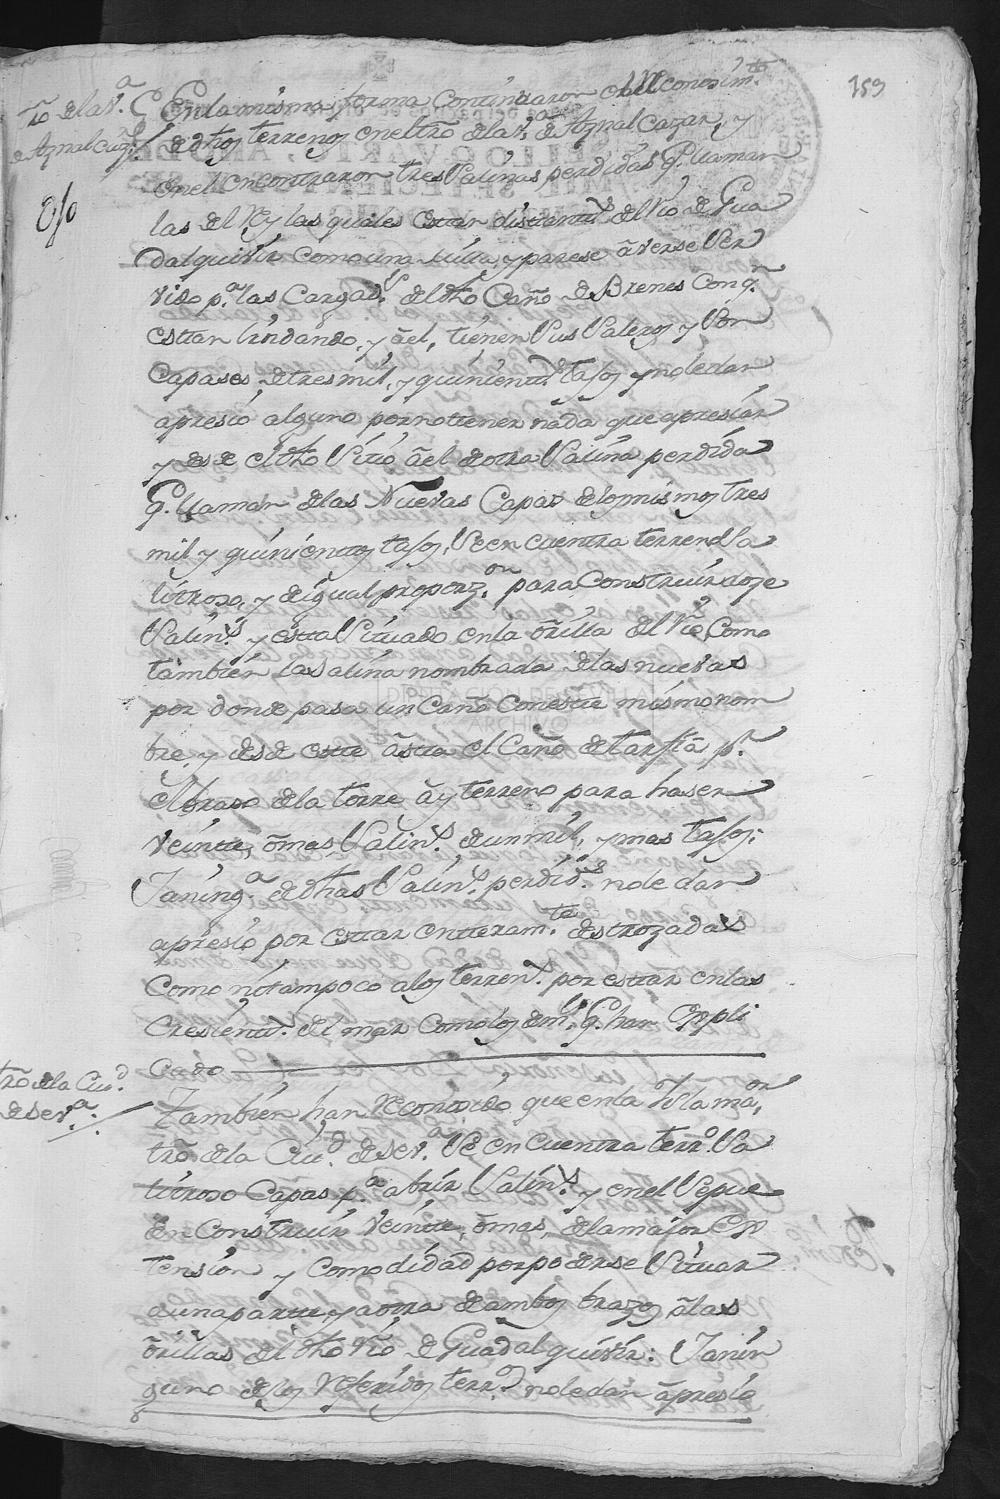 159
tr̃o de la v.ª
de Aznalcaz.r
En la misma forma continuaron el Reconosim.to
de dhos terrenos en el tr̃o de la v.ª de Aznalcazar, y
en el encontraron tres Salinas perdidas q. llaman
las del Rey las quales estan distantes del Rio de Gua
dalquivir como una lũa y parese ãverse Ser
vido p.ª las Cargad.s del dho Caño de Brenes Con q.n
estan lindando, y ã el, tienen Sus Saleros y Son
Capases de tres mil, y quinient.s tasos y no le dan
apresio alguno por no tener nada que apresiar
y desde el dho Sitio ã el de otra Salina perdida
q. llaman de las Nuevas Capas de los mismos tres
mil y quinientos tasos, Se en cuentra terreno Sa
litroso, y de igual proporz.on para Construir doze
Salin.s y esta Situado en la õrilla del Rio, Como
tambien la salina nombrada de las nuevas
DIPUTACION DE SEVILLA
ARCHIVO
por donde pasa un Caño Con este mismo nom
bre, y desde este ãsta el Caño de tarfia p.r
el braso de la torre ãy terreno para haser
veinte, õ mas Salin.s de un mil, y mas tasos:
Ianing.ª de dhas Salin.s perdid.s no le dan
apresio por estar entteram.te destrozadas
Como ni tampoco a los terren.s por estar en las
Cresient.s del mar Como los dem.s q. han Expli
cado
tr̃o de la Ciu.d
de Sev.ª
Tambien han Reconosido que en la Isla ma.or
tr̃o de la Ciu.d de Sev.ª Se en cuentra terr.o Sa
litroso Capas p.ª abrir Salin.s y en el Se pue
den Construir veinte, õ mas, de la maior Ex
tension y Comodidad por poderse Situar
a una parte, y a otra de ambos brazos ã las
õrillas del dho rio de Guadalquivir: Ianin
guno de los Referidos terr.s no le dan ãpresio